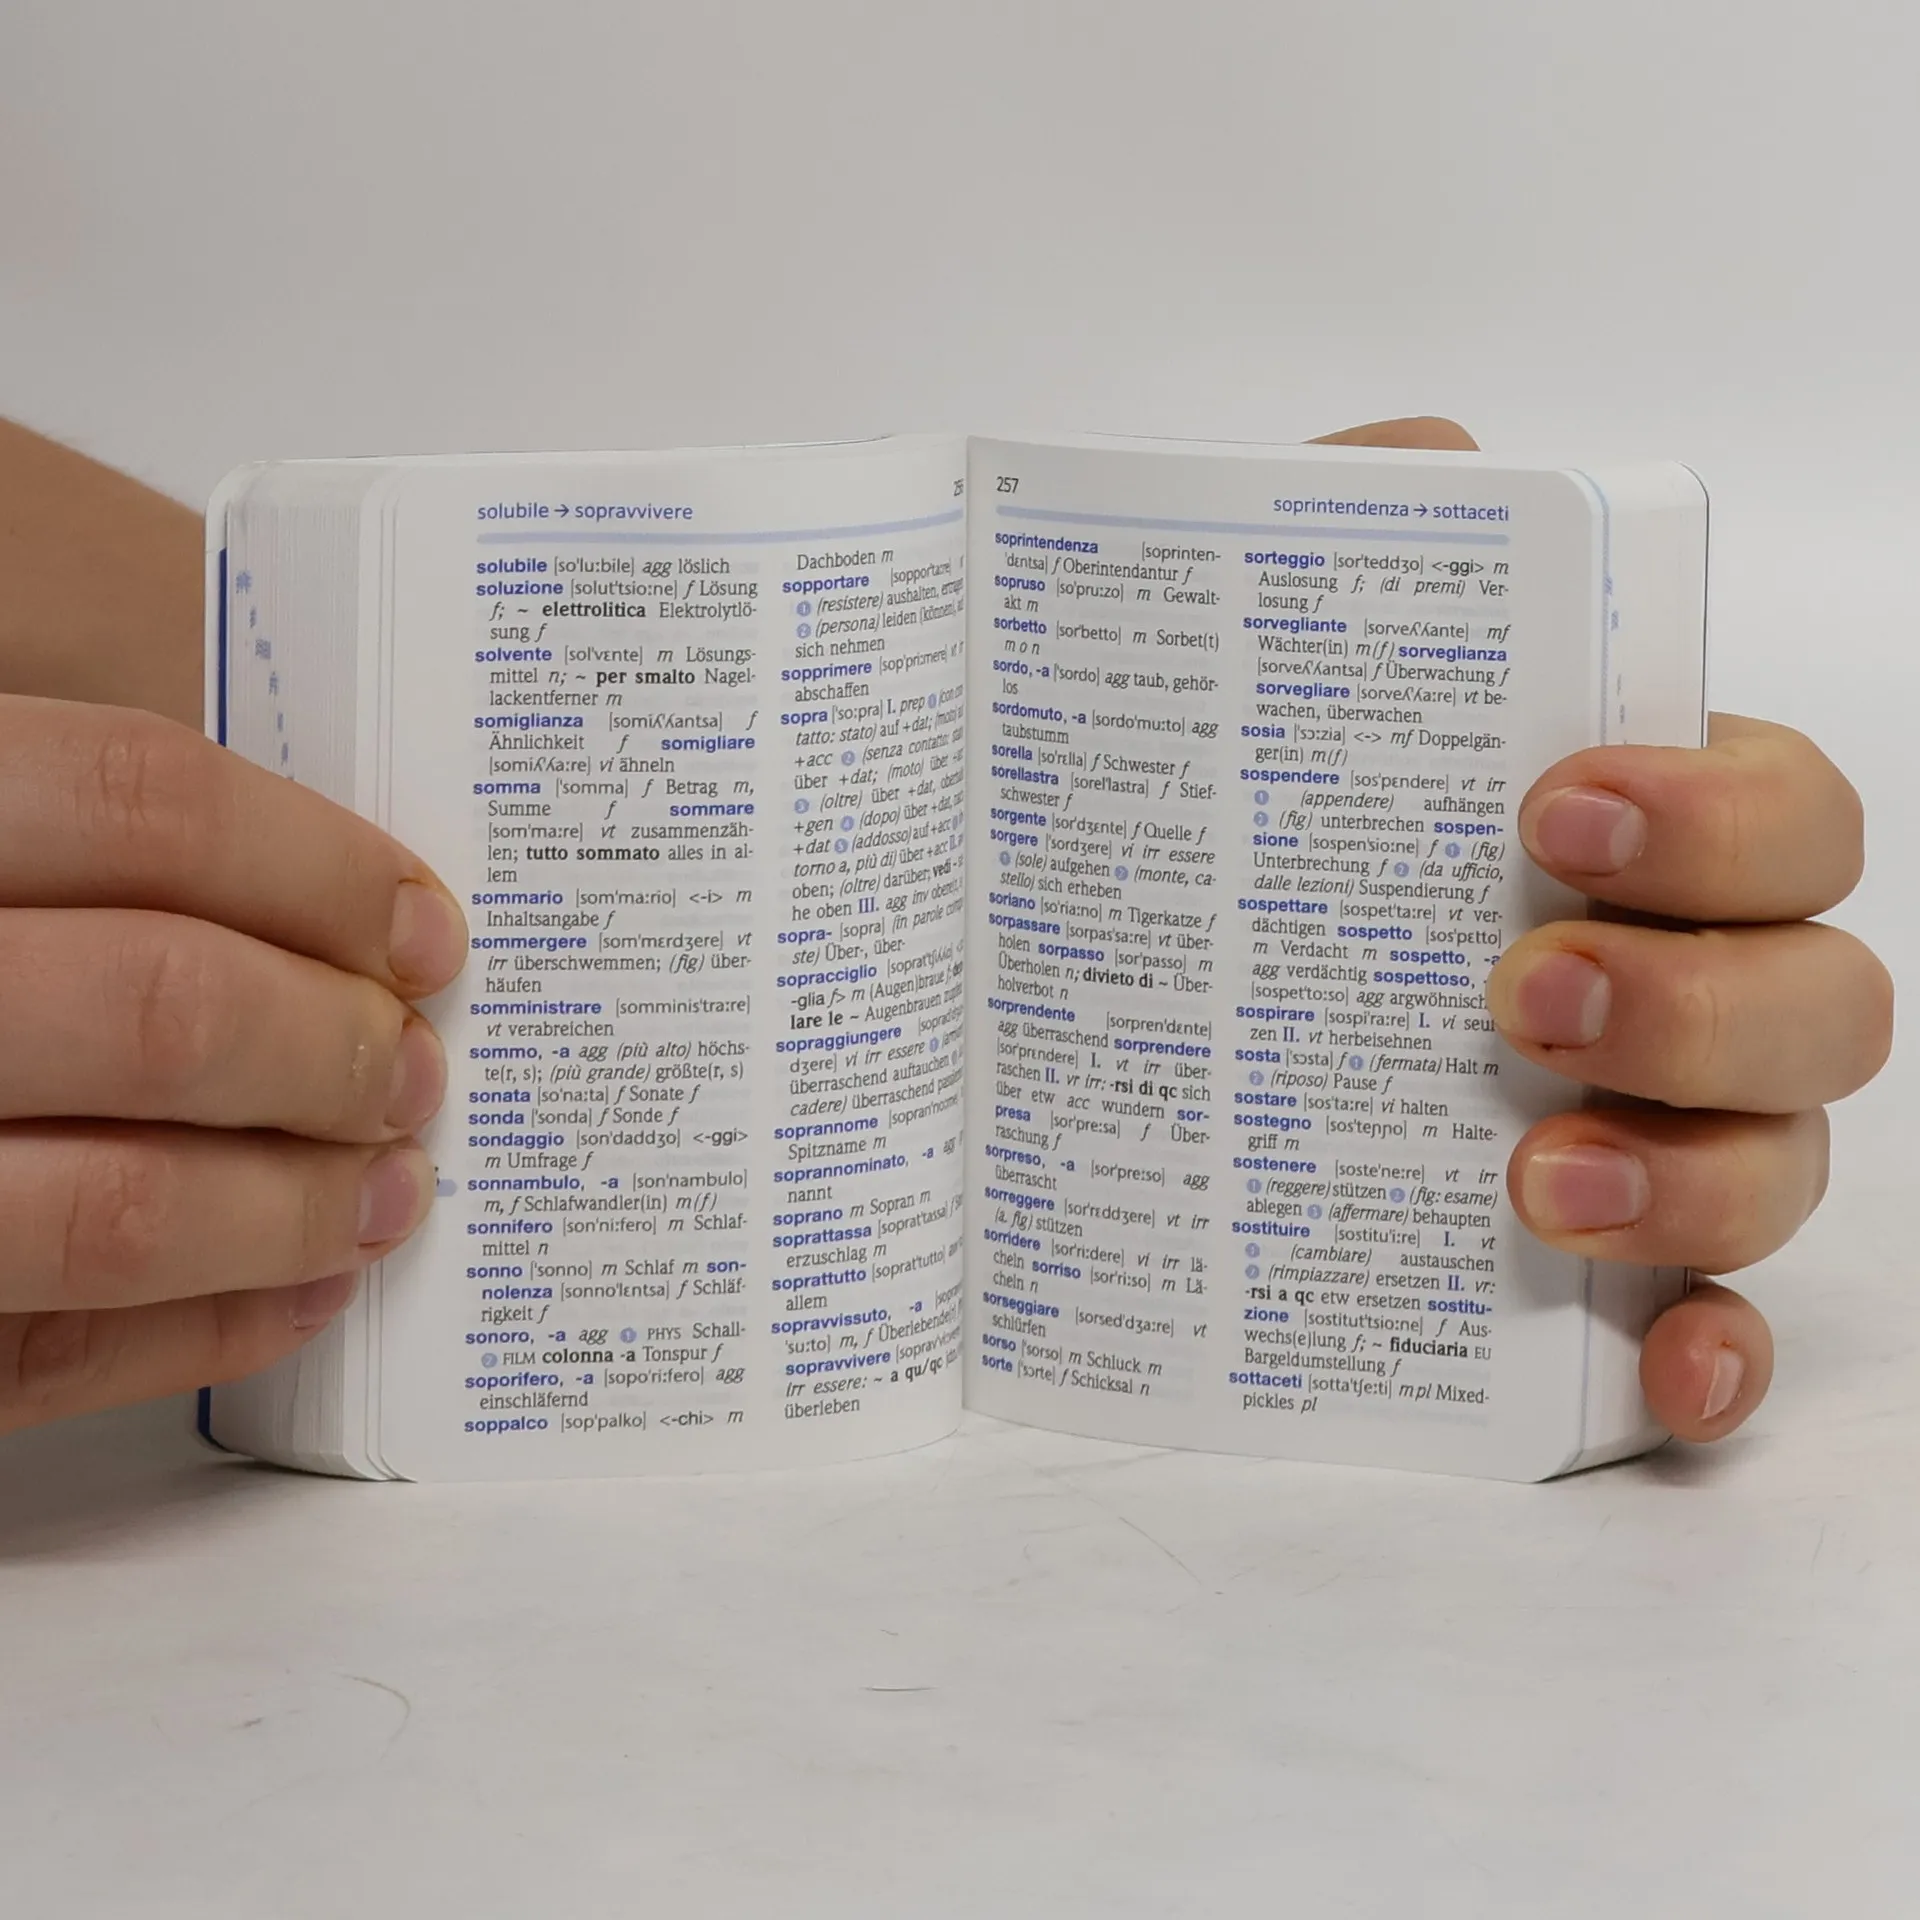 solubile → sopravvivere
solubile [so'lu:bile] agg löslich
soluzione [solut'tsio:ne] f Lösung
f; ~ elettrolitica Elektrolytlö-
sung f
solvente [sol'vɛnte] m Lösungs-
mittel n; ~ per smalto Nagel-
lackentferner m
somiglianza [somiʎ'ʎantsa] f
Ähnlichkeit f somigliare
[somiʎ'ʎa:re] vi ähneln
somma ['somma] f Betrag m,
Summe f sommare
[som'ma:re] vt zusammenzäh-
len; tutto sommato alles in al-
lem
sommario [som'ma:rio] <-i> m
Inhaltsangabe f
sommergere [som'mɛrdʒere] vt
irr überschwemmen; (fig) über-
häufen
somministrare [somminis'tra:re]
vt verabreichen
sommo, -a agg (più alto) höchs-
te(r, s); (più grande) größte(r, s)
sonata [so'na:ta] f Sonate f
sonda ['sonda] f Sonde f
sondaggio [son'daddʒo] <-ggi>
m Umfrage f
sonnambulo, -a [son'nambulo]
m, f Schlafwandler(in) m(f)
sonnifero [son'ni:fero] m Schlaf-
mittel n
sonno ['sonno] m Schlaf m son-
nolenza [sonno'lɛntsa] f Schläf-
rigkeit f
sonoro, -a agg ① PHYS Schall-
② FILM colonna -a Tonspur f
soporifero, -a [sopo'ri:fero] agg
einschläfernd
soppalco [sop'palko] <-chi> m
Dachboden m
sopportare [soppor'ta:re]
① (resistere) aushalten, ertragen
② (persona) leiden [können],
sich nehmen
sopprimere [sop'pri:mere] vt irr
abschaffen
sopra ['so:pra] I. prep ① (con con-
tatto: stato) auf +dat; (moto)
+acc ② (senza contatto:
über +dat; (moto) über
③ (oltre) über +dat,
+gen ④ (dopo) über +dat,
+dat ⑤ (addosso) auf +acc
torno a, più di) über +acc II.
oben; (oltre) darüber; vedi
he oben III. agg inv
sopra- [sopra] (in parole compo-
ste) Über-, über-
sopracciglio
-glia f> m (Augen)braue f;
lare le ~ Augenbrauen
sopraggiungere
dʒere] vi irr essere ①
überraschend auftauchen ②
cadere) überraschend
soprannome [sopran'no:me]
Spitzname m
soprannominato, -a agg
nannt
soprano m Sopran m
soprattassa [soprat'tassa] f
erzuschlag m
soprattutto [soprat'tutto]
allem
sopravvissuto, -a
'su:to] m, f Überlebende(r)
sopravvivere
irr essere: ~ a qu/qc
überleben
257
soprintendenza → sottaceti
soprintendenza [soprinten-
'dɛntsa] f Oberintendantur f
sopruso [so'pru:zo] m Gewalt-
akt m
sorbetto [sor'betto] m Sorbet(t)
m o n
sordo, -a ['sordo] agg taub, gehör-
los
sordomuto, -a [sordo'mu:to] agg
taubstumm
sorella [so'rɛlla] f Schwester f
sorellastra [sorel'lastra] f Stief-
schwester f
sorgente [sor'dʒɛnte] f Quelle f
sorgere ['sordʒere] vi irr essere
① (sole) aufgehen ② (monte, ca-
stello) sich erheben
soriano [so'ria:no] m Tigerkatze f
sorpassare [sorpas'sa:re] vt über-
holen sorpasso [sor'passo] m
Überholen n; divieto di ~ Über-
holverbot n
sorprendente [sorpren'dɛnte]
agg überraschend sorprendere
[sor'prɛndere] I. vt irr über-
raschen II. vr irr: -rsi di qc sich
über etw acc wundern sor-
presa [sor'pre:sa] f Über-
raschung f
sorpreso, -a [sor'pre:so] agg
überrascht
sorreggere [sor'rɛddʒere] vt irr
(a. fig) stützen
sorridere [sor'ri:dere] vi irr lä-
cheln sorriso [sor'ri:so] m Lä-
cheln n
sorseggiare [sorsed'dʒa:re] vt
schlürfen
sorso ['sorso] m Schluck m
sorte ['sɔrte] f Schicksal n
sorteggio [sor'teddʒo] <-ggi> m
Auslosung f; (di premi) Ver-
losung f
sorvegliante [sorveʎ'ʎante] mf
Wächter(in) m(f) sorveglianza
[sorveʎ'ʎantsa] f Überwachung f
sorvegliare [sorveʎ'ʎa:re] vt be-
wachen, überwachen
sosia ['sɔ:zia] <-> mf Doppelgän-
ger(in) m(f)
sospendere [sos'pɛndere] vt irr
① (appendere) aufhängen
② (fig) unterbrechen sospen-
sione [sospen'sio:ne] f ① (fig)
Unterbrechung f ② (da ufficio,
dalle lezioni) Suspendierung f
sospettare [sospet'ta:re] vt ver-
dächtigen sospetto [sos'pɛtto]
m Verdacht m sospetto, -a
agg verdächtig sospettoso,
[sospet'to:so] agg argwöhnisch
sospirare [sospi'ra:re] I. vi seuf-
zen II. vt herbeisehnen
sosta ['sɔsta] f ① (fermata) Halt m
② (riposo) Pause f
sostare [sos'ta:re] vi halten
sostegno [sos'teɲɲo] m Halte-
griff m
sostenere [soste'ne:re] vt irr
① (reggere) stützen ② (fig: esame)
ablegen ③ (affermare) behaupten
sostituire [sostitu'i:re] I. vt
① (cambiare) austauschen
② (rimpiazzare) ersetzen II. vr:
-rsi a qc etw ersetzen sostitu-
zione [sostitut'tsio:ne] f Aus-
wechs(e)lung f; ~ fiduciaria EU
Bargeldumstellung f
sottaceti [sotta'tʃe:ti] mpl Mixed-
pickles pl